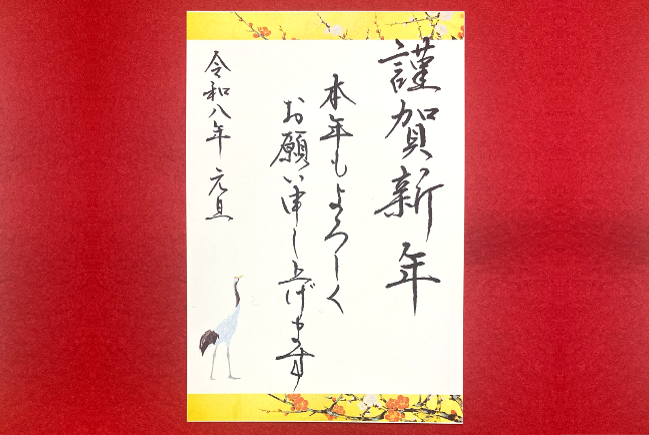 謹賀新年
本年もよろしく
お願い申し上げます
令和八年 元旦